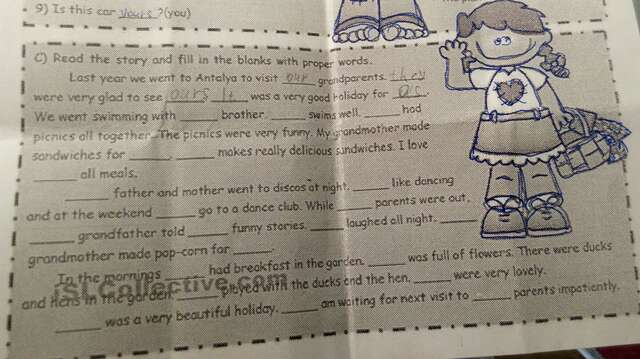 9) Is this car yours ?(you)
C) Read the story and fill in the blanks with proper words.
Last year we went to Antalya to visit our grandparents. they
were very glad to see ours It was a very good holiday for as.
We went swimming with ______ brother. ______ swims well. ______ had
picnics all together. The picnics were very funny. My grandmother made
sandwiches for ______. ______ makes really delicious sandwiches. I love
______ all meals.
______ father and mother went to discos at night. ______ like dancing
and at the weekend ______ go to a dance club. While ______ parents were out,
______ grandfather told ______ funny stories. ______ laughed all night. ______
grandmother made pop-corn for ______.
In the mornings ______ had breakfast in the garden. ______ was full of flowers. There were ducks
and hens in the garden. ______ played with the ducks end the hen, ______ were very lovely.
iSLCollective.com
______ was a very beautiful holiday. ______ am waiting for next visit to ______ parents impatiently.